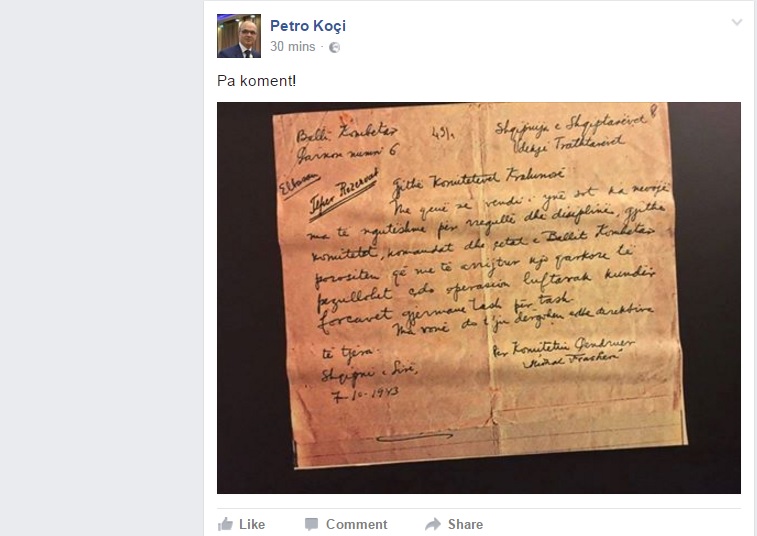 Petro Koçi
30 mins
Pa koment!
Balli Kombetar
Qarkon numër 6
43/1
Shqipnija e Shqiptarëvet
vdekje Tradhtarëvet
8
Elbasan
Tepër Rezervat
Gjithë Komitetevet Krahinorë
Me qenë se vendi ynë sot ka nevojë
ma të ngutëshme për rregullë dhe disiplinë, gjitha
komitetet, komandat dhe çetat e Ballit Kombetar
porositen që me të arrijtur kjo qarkore të
pezullohet çdo operasion luftarak kundër
forcavet gjermane tash për tash.
Ma vonë do t'ju dergohen edhe direktiva
të tjera.
Shqipni e Lirë,
7-10-1943
Per Komitetin Qendruer
"Mid'hat Frashëri"
Like
Comment
Share